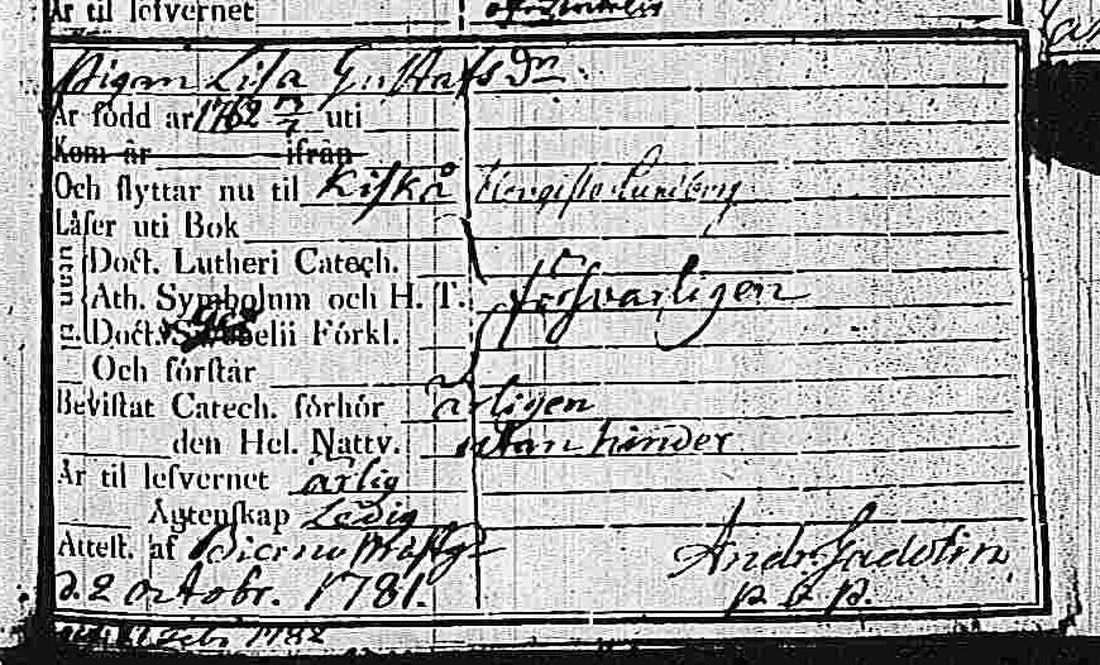 Är til lefvernet
Pigan Lisa Gustafs Dn.
Är född år 1762 uti
Kom år ifrån
Och flyttar nu til Kiskå
Läser uti Bok
Doct. Lutheri Catech.
Ath. Symbolum och H. T.
försvarligen
Doct. Förkl.
Och förstår
Bevistat Catech. förhör årligen
den Hel. Nattv. utan hinder
Är til lefvernet ärlig
Ägtenskap Ledig
Attest. af Bierno Prästg.
d. 2 octobr. 1781.
Andr. Gadolin
p. & p.
Febr 1782